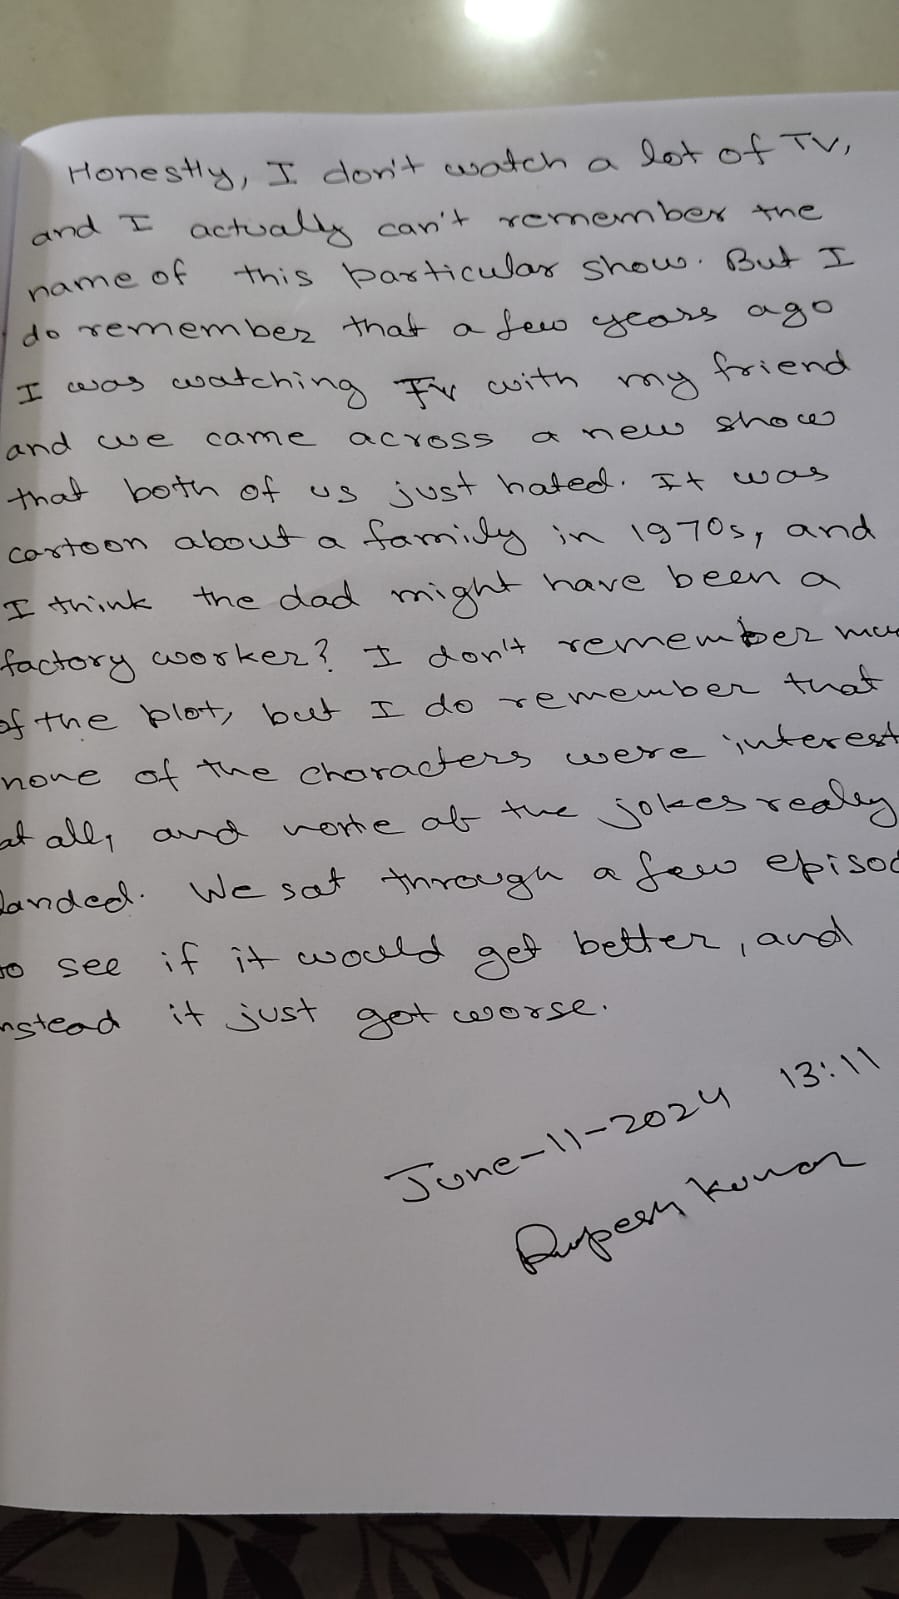 Honestly, I don't watch a lot of TV,
and I actually can't remember the
name of this particular show. But I
do remember that a few years ago
I was watching TV with my friend
and we came across a new show
that both of us just hated. It was
cartoon about a family in 1970s, and
I think the dad might have been a
factory worker? I don't remember muc
of the plot, but I do remember that
none of the characters were interest
at all, and none of the jokes really
landed. We sat through a few episod
to see if it would get better, and
nstead it just got worse.
June-11-2024 13:11
Rupesh Kumar